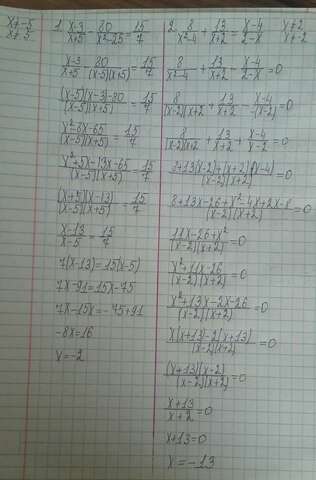 x≠-5
x≠5
1. x-3/x+5 - 80/x²-25 = 15/7
x-3/x+5 - 80/(x-5)(x+5) = 15/7
(x-5)(x-3)-80/(x-5)(x+5) = 15/7
x²-8x-65/(x-5)(x+5) = 15/7
x²+5x-13x-65/(x-5)(x+5) = 15/7
(x+5)(x-13)/(x-5)(x+5) = 15/7
x-13/x-5 = 15/7
7(x-13)=15(x-5)
7x-91=15x-75
7x-15x=-75+91
-8x=16
x=-2
2. 8/x²-4 + 13/x+2 = x-4/2-x
x≠2
x≠-2
8/x²-4 + 13/x+2 - x-4/2-x =0
8/(x-2)(x+2 + 13/x+2 - x-4/-(x-2) =0
8/(x-2)(x+2 + 13/x+2 + x-4/x-2 =0
8+13(x-2)+(x+2)(x-4)/(x-2)(x+2) =0
8+13x-26+x²-4x+2x-8/(x-2)(x+2) =0
11x-26+x²/(x-2)(x+2) =0
x²+11x-26/(x-2)(x+2) =0
x²+13x-2x-26/(x-2)(x+2) =0
x(x+13)-2(x+13)/(x-2)(x+2) =0
(x+13)(x-2)/(x-2)(x+2) =0
x+13/x+2 =0
x+13=0
x=-13